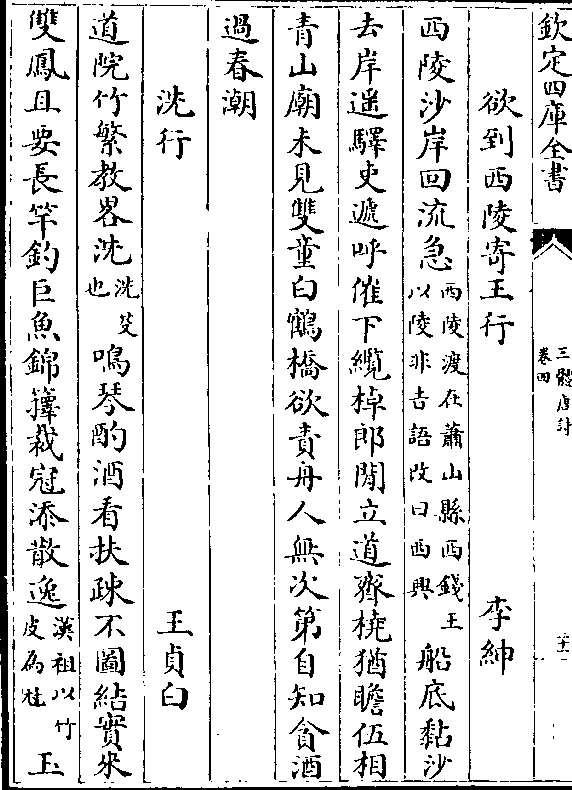 欽定四庫全書
三體唐詩
卷四
欲到西陵寄王行 李紳
西陵沙岸回流急西陵渡在蕭山縣西錢王以陵非吉語改曰西興船底黏沙
去岸遥驛吏遞呼催下纜棹郎閒立道齊橈猶瞻伍相
青山廟未見雙童白鶴橋欲責舟人無次第自知貪酒
過春潮
洗行 王貞白
道院竹繁教畧洗洗芟也鳴琴酌酒看扶疎不圖結實來
雙鳳且要長竿釣巨魚錦籜裁冠添散逸漢祖以竹皮為冠玉